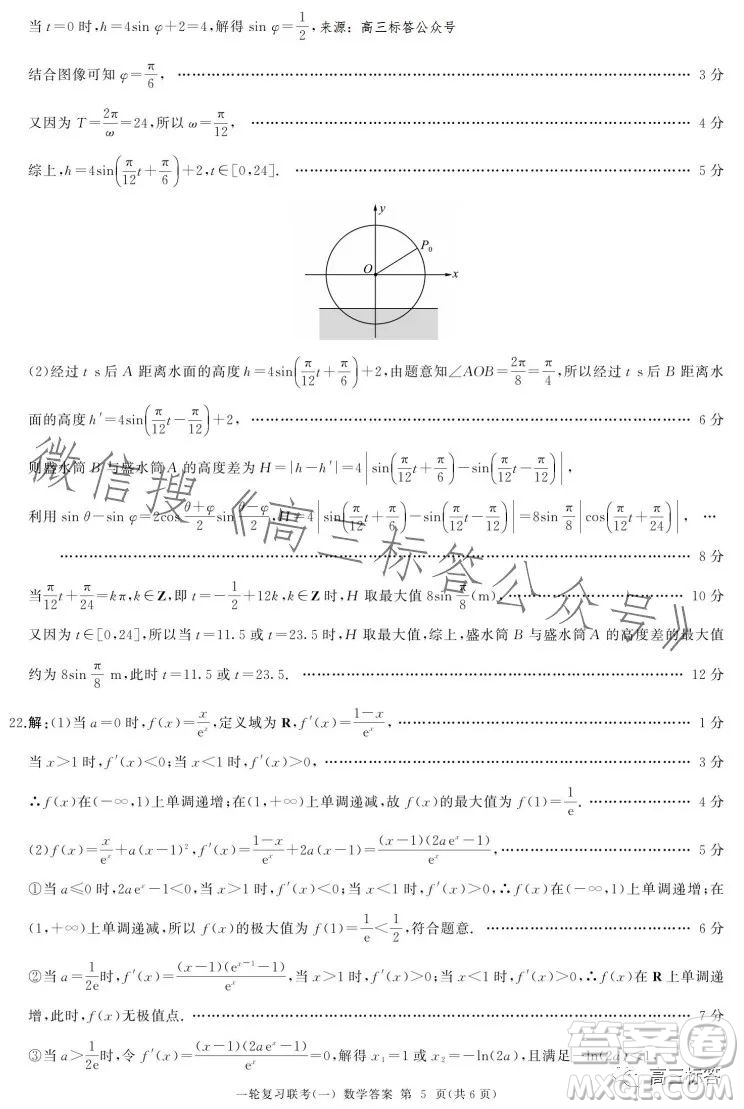 当 t=0 时,h=4sin φ+2=4,解得 sin φ=1/2, 来源: 高三标答公众号
结合图像可知 φ=π/6, …… 3 分
又因为 T=2π/ω=24,所以 ω=π/12, …… 4 分
综上,h=4sin(π/12 t+π/6)+2,t∈[0,24]. …… 5 分
y
P₀
O
x
(2)经过 t s后 A 距离水面的高度 h=4sin(π/12 t+π/6)+2,由题意知∠AOB=2π/8=π/4,所以经过 t s后 B 距离水
面的高度 h′=4sin(π/12 t−π/12)+2, …… 6 分
则盛水筒 B 与盛水筒 A 的高度差为 H=|h−h′|=4|sin(π/12 t+π/6)−sin(π/12 t−π/12)|,
利用 sin θ−sin φ=2cos (θ+φ)/2 sin (θ−φ)/2, H=4|sin(π/12 t+π/6)−sin(π/12 t−π/12)|=8sin π/8 |cos(π/12 t+π/24)|, …
…… 8 分
当 π/12 t+π/24=kπ,k∈Z,即 t=−1/2+12k,k∈Z时,H 取最大值 8sin π/8(m), …… 10 分
又因为 t∈[0,24],所以当 t=11.5 或 t=23.5 时,H 取最大值,综上,盛水筒 B 与盛水筒 A 的高度差的最大值
约为 8sin π/8 m,此时 t=11.5 或 t=23.5. …… 12 分
22.解:(1)当 a=0 时,f(x)=x/eˣ,定义域为 R,f′(x)=(1−x)/eˣ, …… 1 分
当 x>1 时,f′(x)<0;当 x<1 时,f′(x)>0, …… 3 分
∴f(x)在(−∞,1)上单调递增;在(1,+∞)上单调递减,故 f(x)的最大值为 f(1)=1/e. …… 4 分
(2)f(x)=x/eˣ+a(x−1)²,f′(x)=(1−x)/eˣ+2a(x−1)=(x−1)(2aeˣ−1)/eˣ, …… 5 分
①当 a≤0 时,2aeˣ−1<0,当 x>1 时,f′(x)<0;当 x<1 时,f′(x)>0,∴f(x)在(−∞,1)上单调递增;在
(1,+∞)上单调递减,所以 f(x)的极大值为 f(1)=1/e<1/2,符合题意. …… 6 分
②当 a=1/2e 时,f′(x)=(x−1)(eˣ⁻¹−1)/eˣ,当 x>1 时,f′(x)>0;当 x<1 时,f′(x)>0,∴f(x)在 R 上单调递
增,此时,f(x)无极值点. …… 7 分
③当 a>1/2e 时,令 f′(x)=(x−1)(2aeˣ−1)/eˣ=0,解得 x₁=1 或 x₂=−ln(2a),且满足 −ln(2a)<1,
一轮复习联考(一) 数学答案 第 5 页(共 6 页)
微信搜《高三标答公众号》
高三标答
答案圈
MXQE.COM